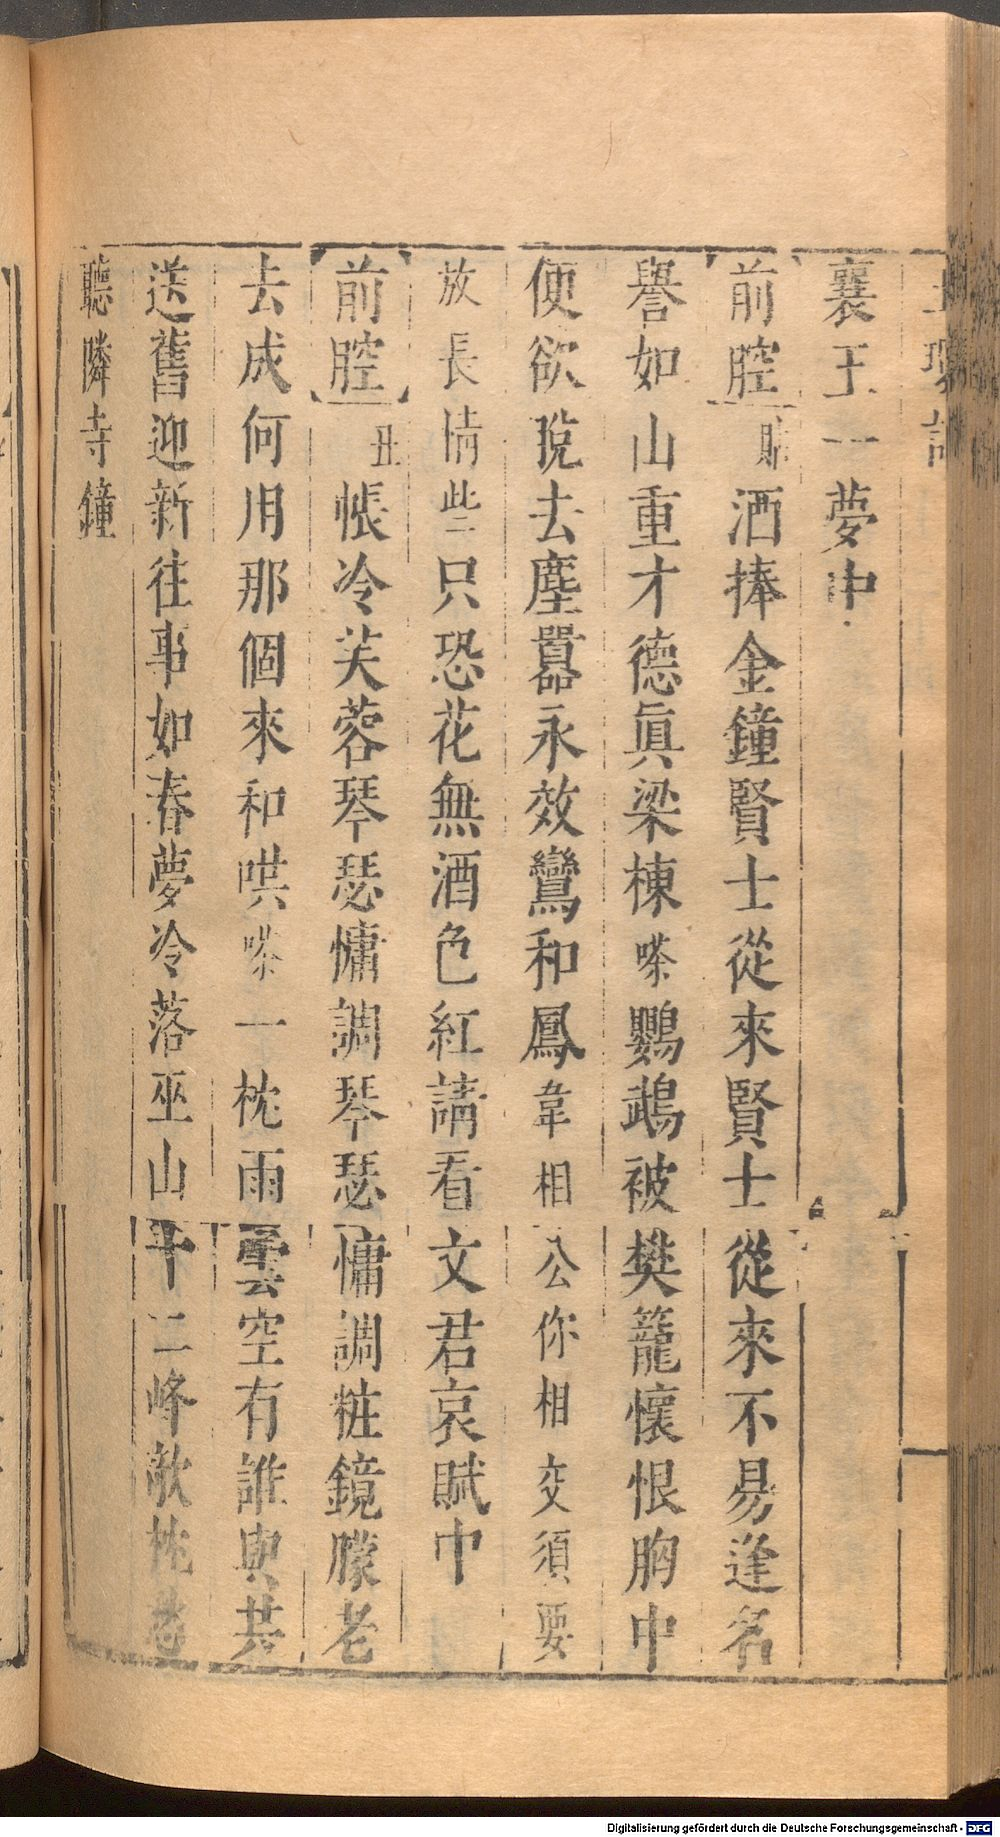 玉環記
襄王一夢中
前腔 貼 洒捧金鐘賢士從來賢士從來不易逢名
譽如山重才德眞梁棟嗏鸚鵡被樊籠懷恨胸中
便欲脫去塵囂永效鸞和鳳韋相公你相交須要
放長情些只恐花無酒色紅請看文君哀賦中
前腔 丑 帳冷芙蓉琴瑟慵調琴瑟慵調粧鏡朦老
去成何用那個來和哄嗏一枕雨雲空有誰與共
送舊迎新往事如春夢冷落巫山十二峰敧枕愁
聽隣寺鐘
Digitalisierung gefördert durch die Deutsche Forschungsgemeinschaft - DFG